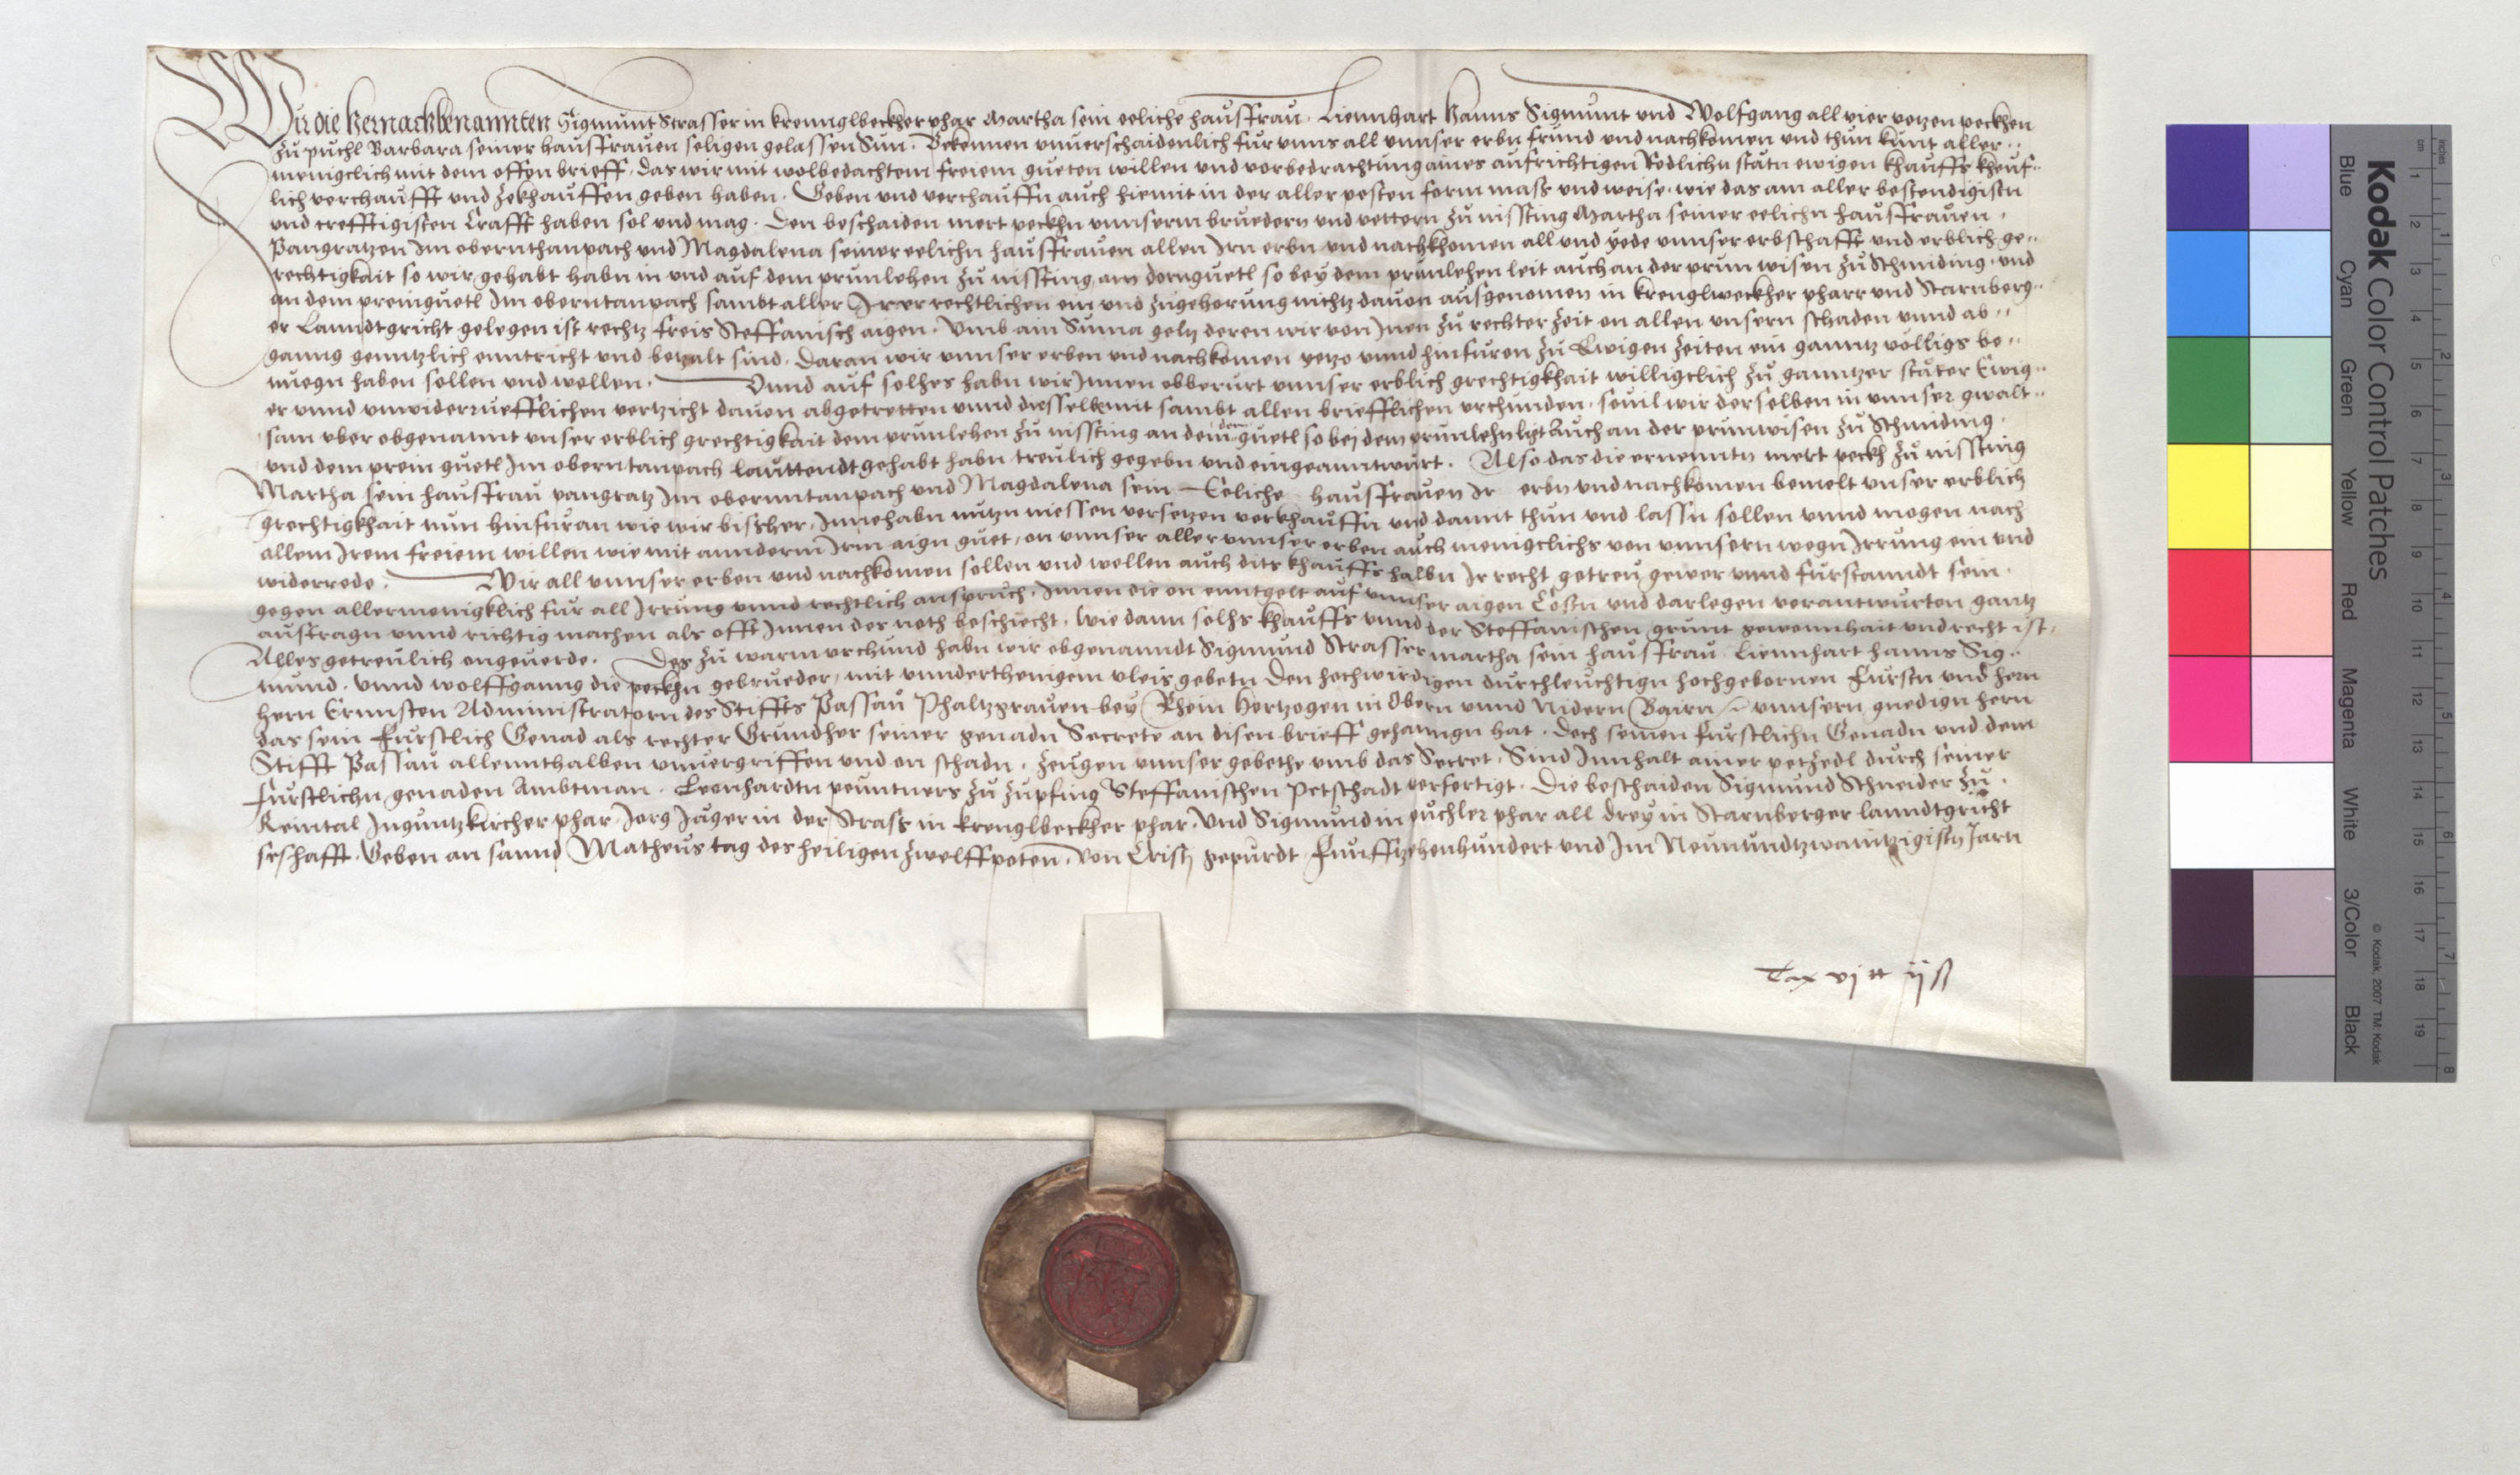 Wir die hernachbenannten Sigmunt Strasser in krennglbeckher phar Martha sein eeliche hausfrau. Liennhart Hanns Sigmunt und Wolfgang all vier peckhen
zu puchl Barbara seiner hausfrauen seligen gelassen Sun. Bekennen unverschaidenlich fur unns all unnser erbn frund und nachkomen und thun kunt aller..
menigclich mit dem offen brieff. das wir mit wolbedachtem freiem gueten willen und vorbedrachtung aines aufrichtigen Redlichn statn ewigen khauffs kheuf..
lich verchaufft und zekhauffen geben haben. Geben und verchauffn auch hiemit in der aller pesten form mass und weise. wie das am aller bestendigistn
und crefftigisten Crafft haben sol und mag. Den beschaiden mert peckhn unnserm bruedern und vettern zu nissting Martha seiner eelichn hausfrauen.
Pangratzen Im obernthanpach und Magdalena seiner eelichn hausfrauen allen Irn erbn und nachkhomen all und yede unnser erbschafft und erblich ge..
rechtigkait so wir gehabt habn in und auf dem prunlehen zu nissting am dernguetl so bey dem prunlehen leit auch an der prun wisen zu Schmiding. und
an dem preinguetl Im oberntanpach sambt aller Irer rechtlichen ein und zugehorung nichtz davon ausgenomen in krenglweckher pharr und Starnberg..
er Lanndtgricht gelegen ist rechtz freis Steffanisch aigen. Umb ain Suma geltz deren wir von Inen zu rechter zeit on allen unsern schaden unnd ab..
ganng genntzlich enntricht und betzalt sind. Daran wir unnser erben und nachkomen yetzo unnd hinfuren zu Ewigen zeiten ein ganntz volligs be..
nuegn haben sollen und wellen. Unnd auf solhes habn wir Innen obberurt unnser erblich grechtigkhait willigclich zu ganntzer stater Ewig..
er unnd unwiderruefflichen vertzicht davon abgetretten unnd diesselbemit sambt allen briefflichen urchunden. sovil wir derselben in unnser gwalt..
sam uber obgenannt unser erblich grechtigkait dem prunlehen zu nissting an dem dernguetl so bei dem prunlehn ligt Auch an der prunwisen zu Schmiding.
und dem prein guetl Im oberntanpach lauttendt gehabt habn treulich gegebn und eingeanntwurt. Also das die ernenntn mert peckh zu nissting
Martha sein hausfrau pangratz Im oberntanpach und Magdalena sein Eeliche hausfrauen Ir erbn und nachkomen bemelt unser erblich
grechtigkhait nun hinfuran wie wir bisher. Innehabn nutzn niessen versetzen verkhauffn und damit thun und lassn sollen unnd mogen nach
allem Irem freiem willen wie mit annderm Irm aign guet. on unnser aller unnser erben auch menigclichs von unnsern wegn Irrung ein und
widerrede. Wir all unnser erben und nachkomen sollen und wellen auch dits khauffs halbn Ir recht getreu gewer unnd furstanndt sein.
gegen allermenigklich fur all Irrung unnd rechtlich anspruch. Innen die on enntgelt auf unnser aigen Costn und darlegen verantwurten gantz
austragn unnd richtig machen als offt Innen des noth beschiecht. Wie dann solhs khauffs unnd der Steffanischen grunt gewonnhait und recht ist.
Alles getreulich ongeverde. Des zu warm urchund habn wir obgenanndt Sigmund Strasser martha sein hausfrau. Liennhart hanns Sig..
mund. unnd wolffganng die peckhn gebrueder. mit unnderthenigem vleis gebetn Den hochwirdigen durchleuchtign hochgebornen Furstn und hern
hern Ernnsten Administratorn des Stiffts Passau Phaltzgrauen bey Rhein hertzogen in Obern unnd Nidern Bairn unnsern gnedign hern
das sein Furstlich Genad als rechter Grundher seiner genadn Secrete an disen brieff gehanngn hat. Doch seinen furstlichn Genadn und dem
Stifft Passau allennthalben unvergriffen und on schadn. Zeugen unnser gebethe umb das Secret. Sind Innhalt ainer petzedl durch seiner
furstlichn genaden Ambtman. Leonhardtn peuntners zu zupfing Steffanischen Petschadt verfertigt. Die beschaiden Sigmund Schneider zu.
Reintal Inguntzkircher phar. Jorg Jager in der Strass in krenglbeckher phar. Und Sigmund in puchler phar all drey in Starnberger lanndtgricht
seschafft. Geben an sannd Matheus tag des heiligen zwelffpoten. Von Cristi gepurdt. Funffzehenhundert und Im Neunundtzwaintzigistn Jarn
Tax vj ₰ ijß
Kodak Color Control Patches
Blue Cyan Green Yellow Red Magenta White 3/Color Black
© Kodak, 2007 TM: Kodak
cm 1 2 3 4 5 6 7 8 9 10 11 12 13 14 15 16 17 18 19
inches 1 2 3 4 5 6 7 8